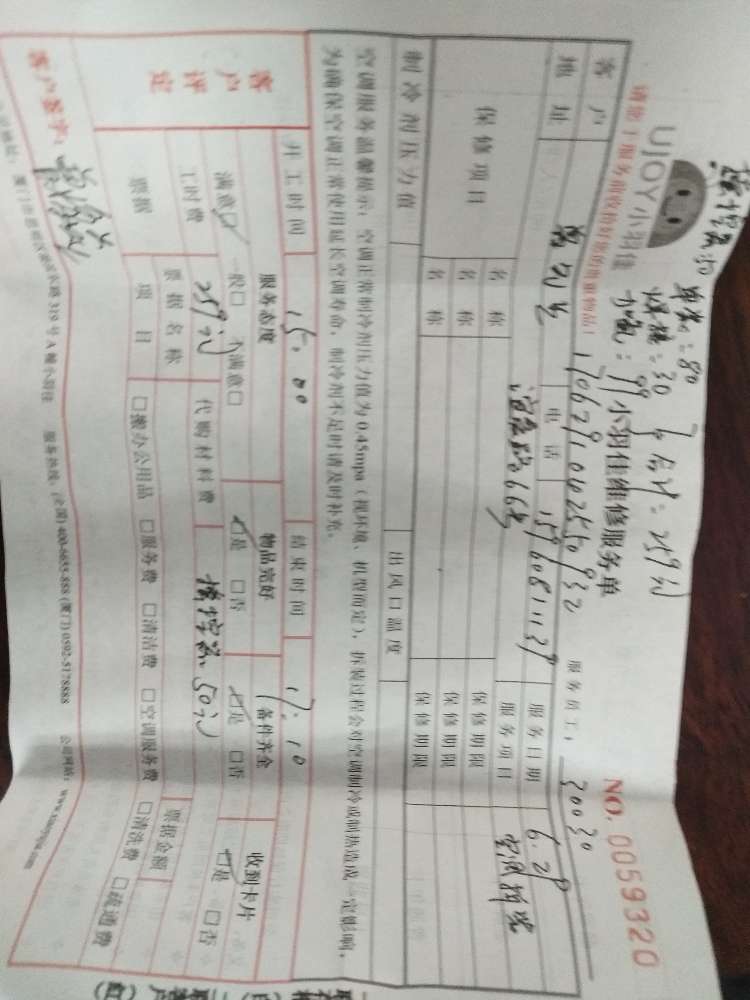 遥控器:50
单卖:80
焊接:30
加氟:99
合计=259元
UJOY小羽佳
小羽佳维修服务单
NO. 0059320
请您于服务前收拾好您的贵重物品!
17062910402550932
服务员工:
30030
客户
电话
15960811139
服务日期
6.29
地址
服务项目
空调拆装
保修项目
名称
保修期限
名称
保修期限
名称
保修期限
制冷剂压力值
出风口温度
空调服务温馨提示:空调正常制冷剂压力值为0.45mpa(视环境、机型而定),拆装过程会对空调制冷或制热造成一定影响,
为确保空调正常使用延长空调寿命,制冷剂不足时请及时补充。
开工时间
15:00
结束时间
17:10
客户评定
服务态度
物品完好
备件齐全
收到卡片
满意□ 一般□ 不满意□
□是 □否
□是 □否
□是 □否
工时费
259元
代购材料费
摇控器:50元
票据
票据名称
票据金额
项目
□搬办公用品 □服务费 □清洁费 □空调服务费 □清洗费 □疏通费
客户签字:
319号A幢小羽佳 服务热线:(全国)400-6655-888 (厦门)0592-5178888 公司网站:www.xiaoyujia.com